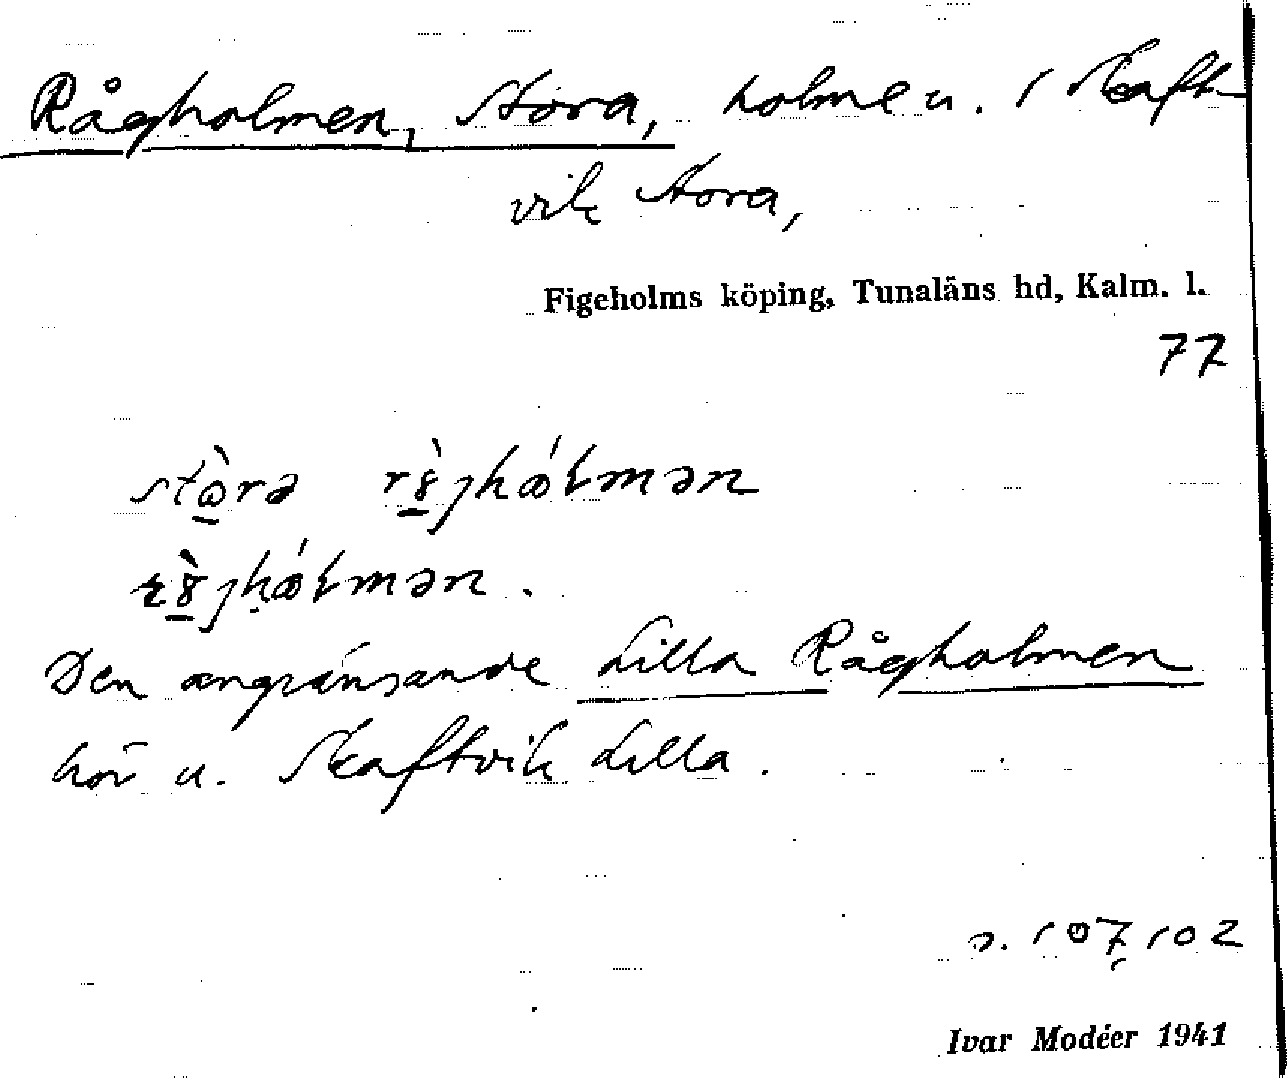 Rågholmen, Stora, holme u. 1 Skaft-
vik Stora,
Figeholms köping, Tunaläns hd, Kalm. l.
77
Den angränsande Lilla Rågholmen
hör u. Skaftvik Lilla.
s. 107, 102
Ivar Modéer 1941